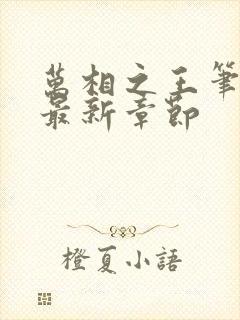 萬相之王筆
最新章節
橙夏小語